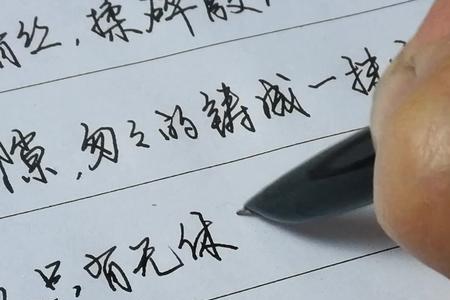 丝，揉碎
隙，匆匆的铸成一
只有无休